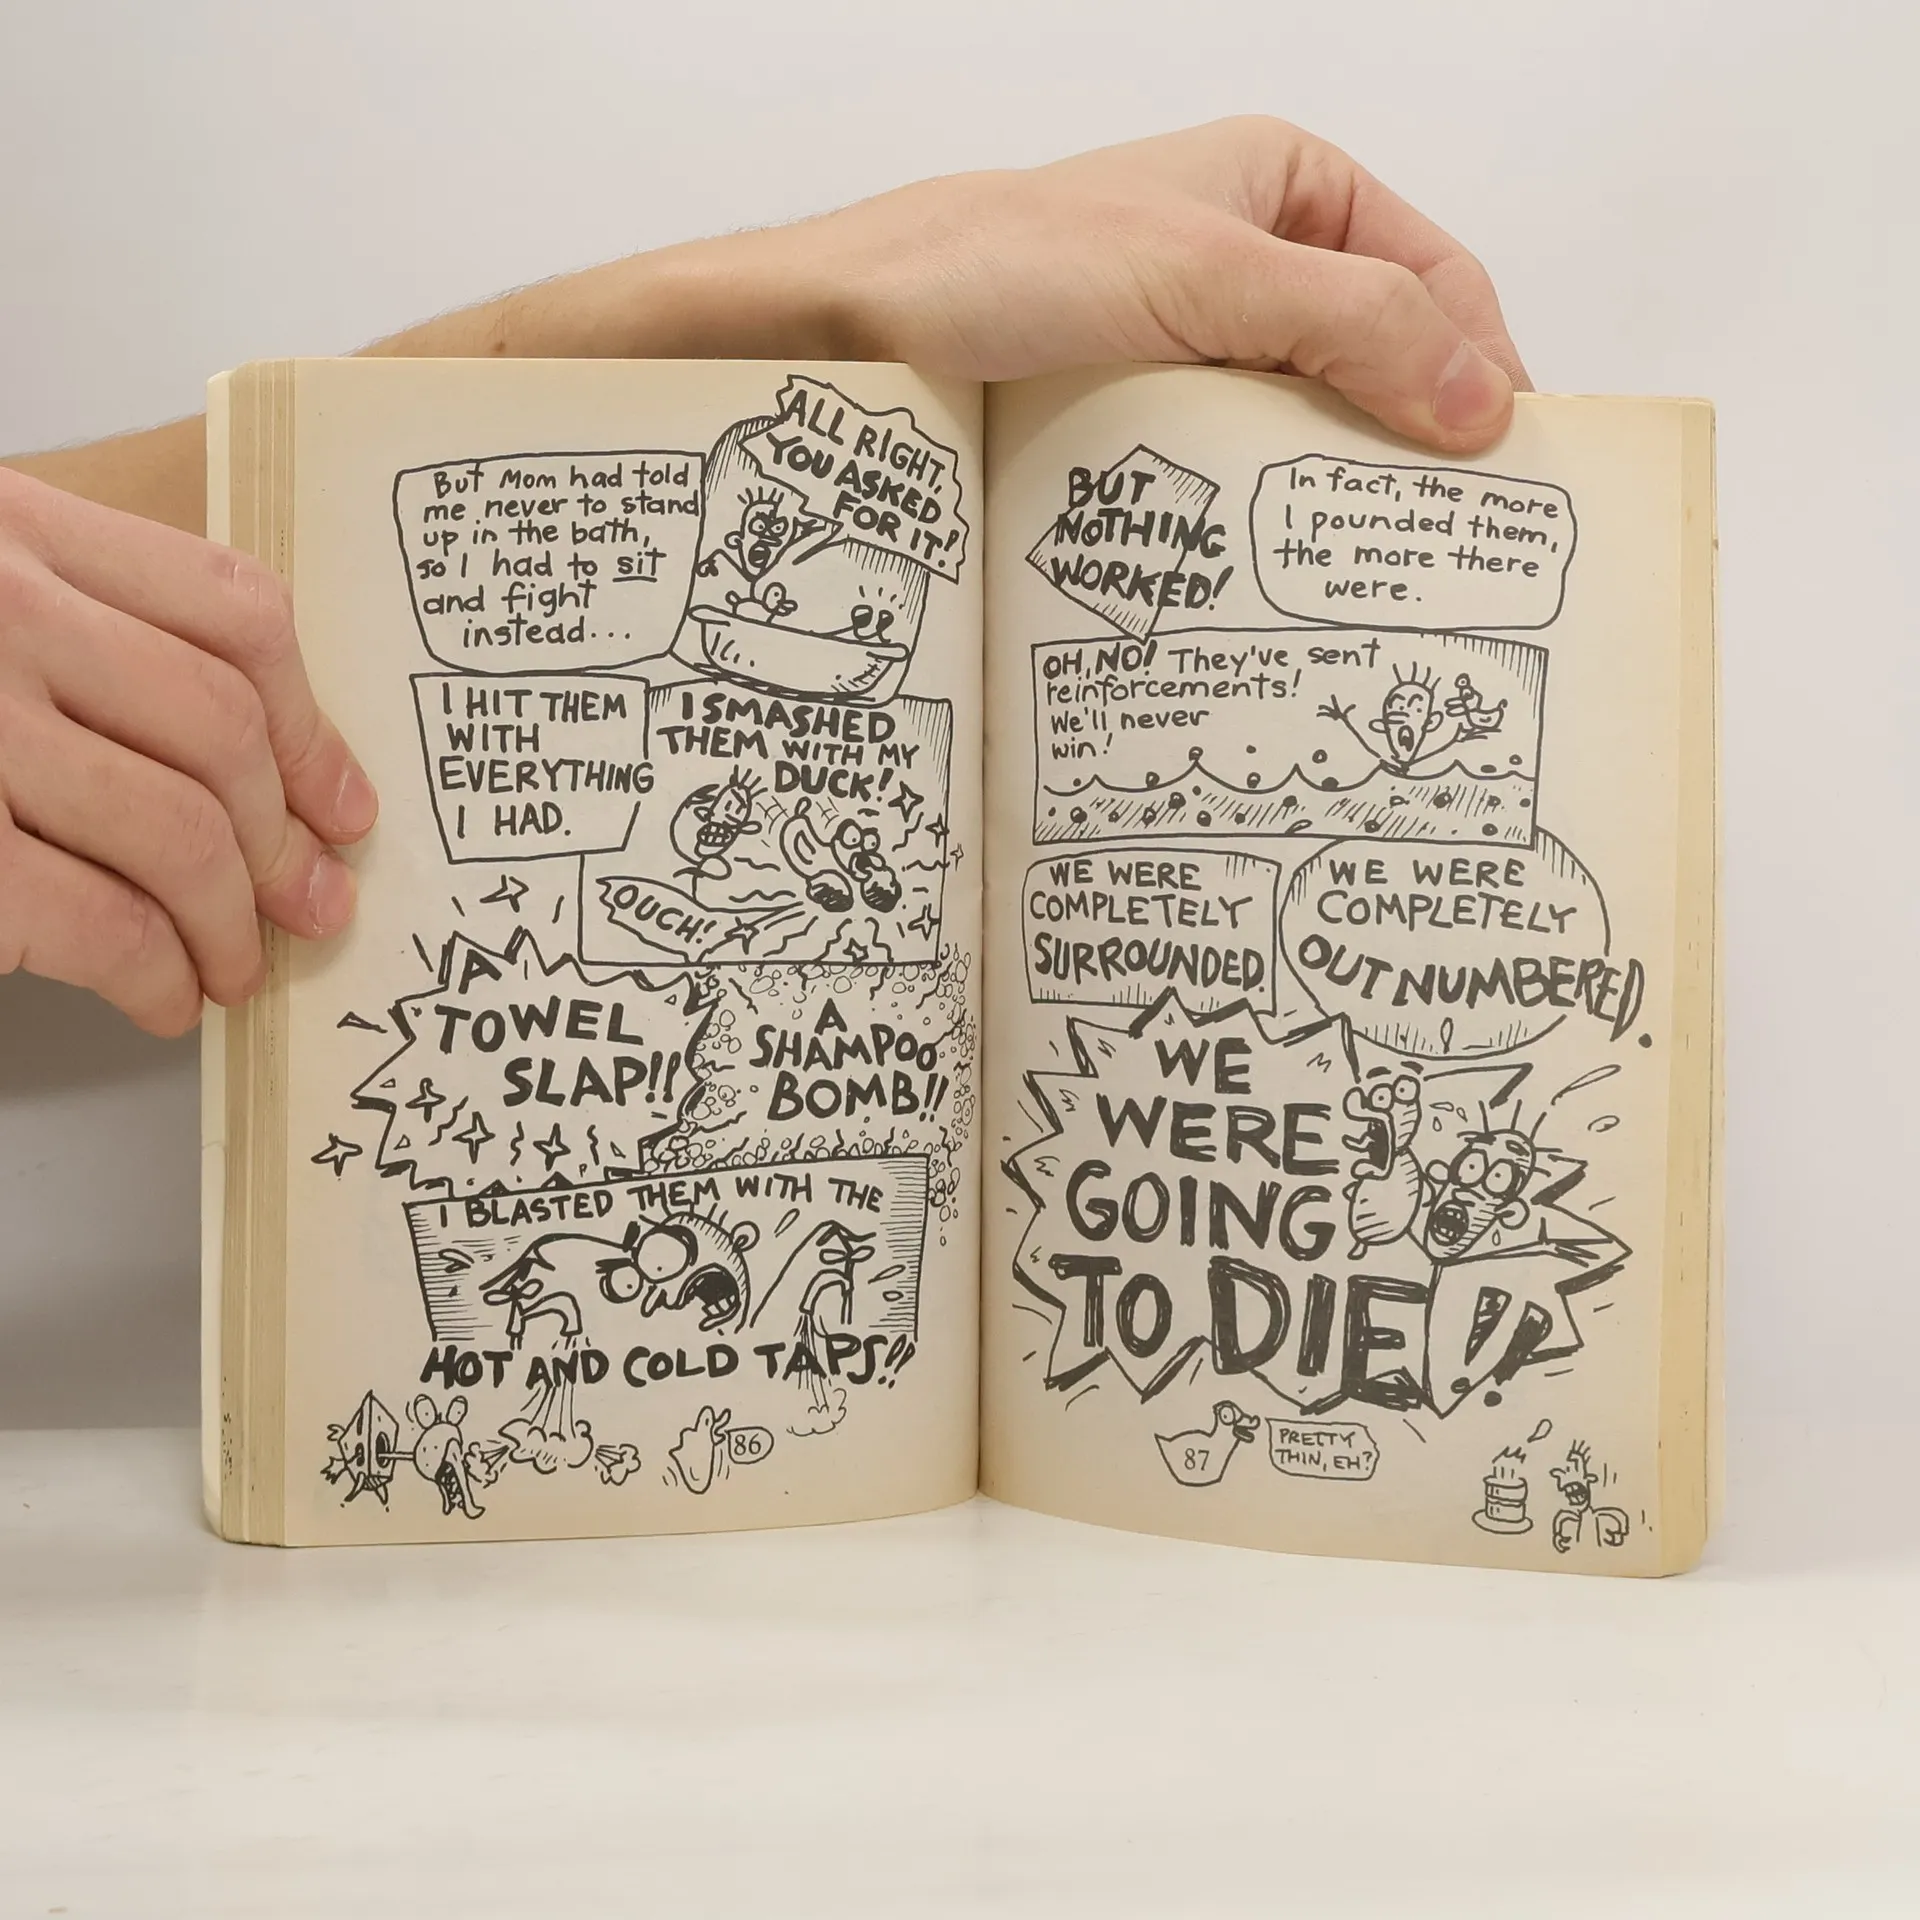 But Mom had told
me never to stand
up in the bath,
so I had to sit
and fight
instead...
ALL RIGHT,
YOU ASKED
FOR IT!
I HIT THEM
WITH
EVERYTHING
I HAD.
I SMASHED
THEM WITH MY
DUCK!
OUCH!
A
TOWEL
SLAP!!
A
SHAMPOO
BOMB!!
I BLASTED THEM WITH THE
HOT AND COLD TAPS!!
86
BUT
NOTHING
WORKED!
In fact, the more
I pounded them,
the more there
were.
OH, NO! They've sent
reinforcements!
We'll never
win!
WE WERE
COMPLETELY
SURROUNDED.
WE WERE
COMPLETELY
OUTNUMBERED.
WE
WERE
GOING
TO DIE!!
87
PRETTY
THIN, EH?